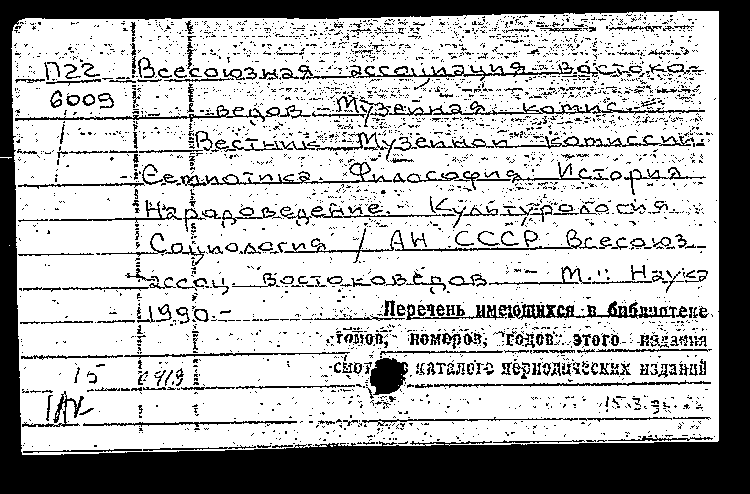 П22 Всесоюзная ассоциация востоко-
6009 ведов. Музейная комис.
Вестник Музейной комиссии.
Семиотика. Философия. История
Народоведение. Культурология
Социология / АН СССР Всесоюз
ассоц. востоковедов – М.: Наука
1990.-
Перечень имеющихся в библиотеке
томов, номеров, годов этого издания
смот в каталоге периодических изданий
15
15.3.9